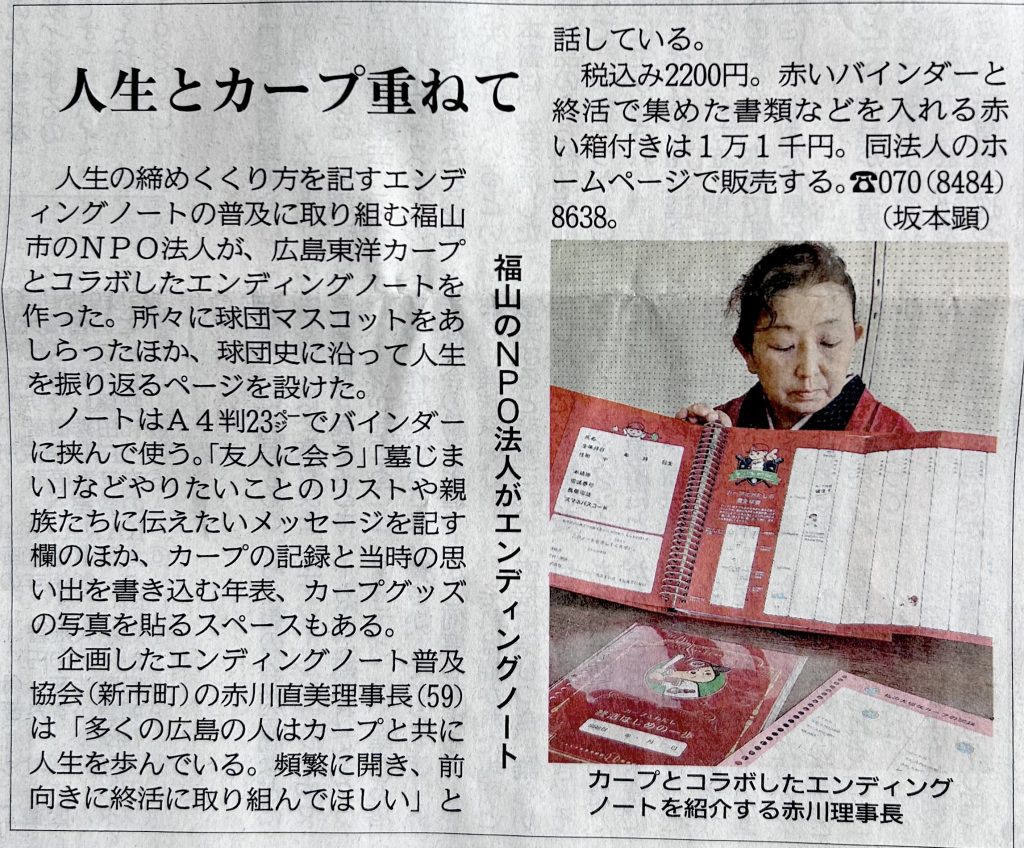 人生とカープ重ねて
福山のNPO法人がエンディングノート
人生の締めくくり方を記すエンデ
ィングノートの普及に取り組む福山
市のNPO法人が、広島東洋カープ
とコラボしたエンディングノートを
作った。所々に球団マスコットをあ
しらったほか、球団史に沿って人生
を振り返るページを設けた。
ノートはA4判23㌻でバインダー
に挟んで使う。「友人に会う」「墓じま
い」などやりたいことのリストや親
族たちに伝えたいメッセージを記す
欄のほか、カープの記録と当時の思
い出を書き込む年表、カープグッズ
の写真を貼るスペースもある。
企画したエンディングノート普及
協会(新市町)の赤川直美理事長(59)
は「多くの広島の人はカープと共に
人生を歩んでいる。頻繁に開き、前
向きに終活に取り組んでほしい」と
話している。
税込み2200円。赤いバインダーと
終活で集めた書類などを入れる赤
い箱付きは1万1千円。同法人のホ
ームページで販売する。☎070(8484)
8638。 (坂本顕)
氏名
生年月日 年 月 日生
住所 〒
本籍地
電話番号
携帯電話
スマホパスコード
終活はじめの一歩
年 月 日
カープとコラボしたエンディング
ノートを紹介する赤川理事長